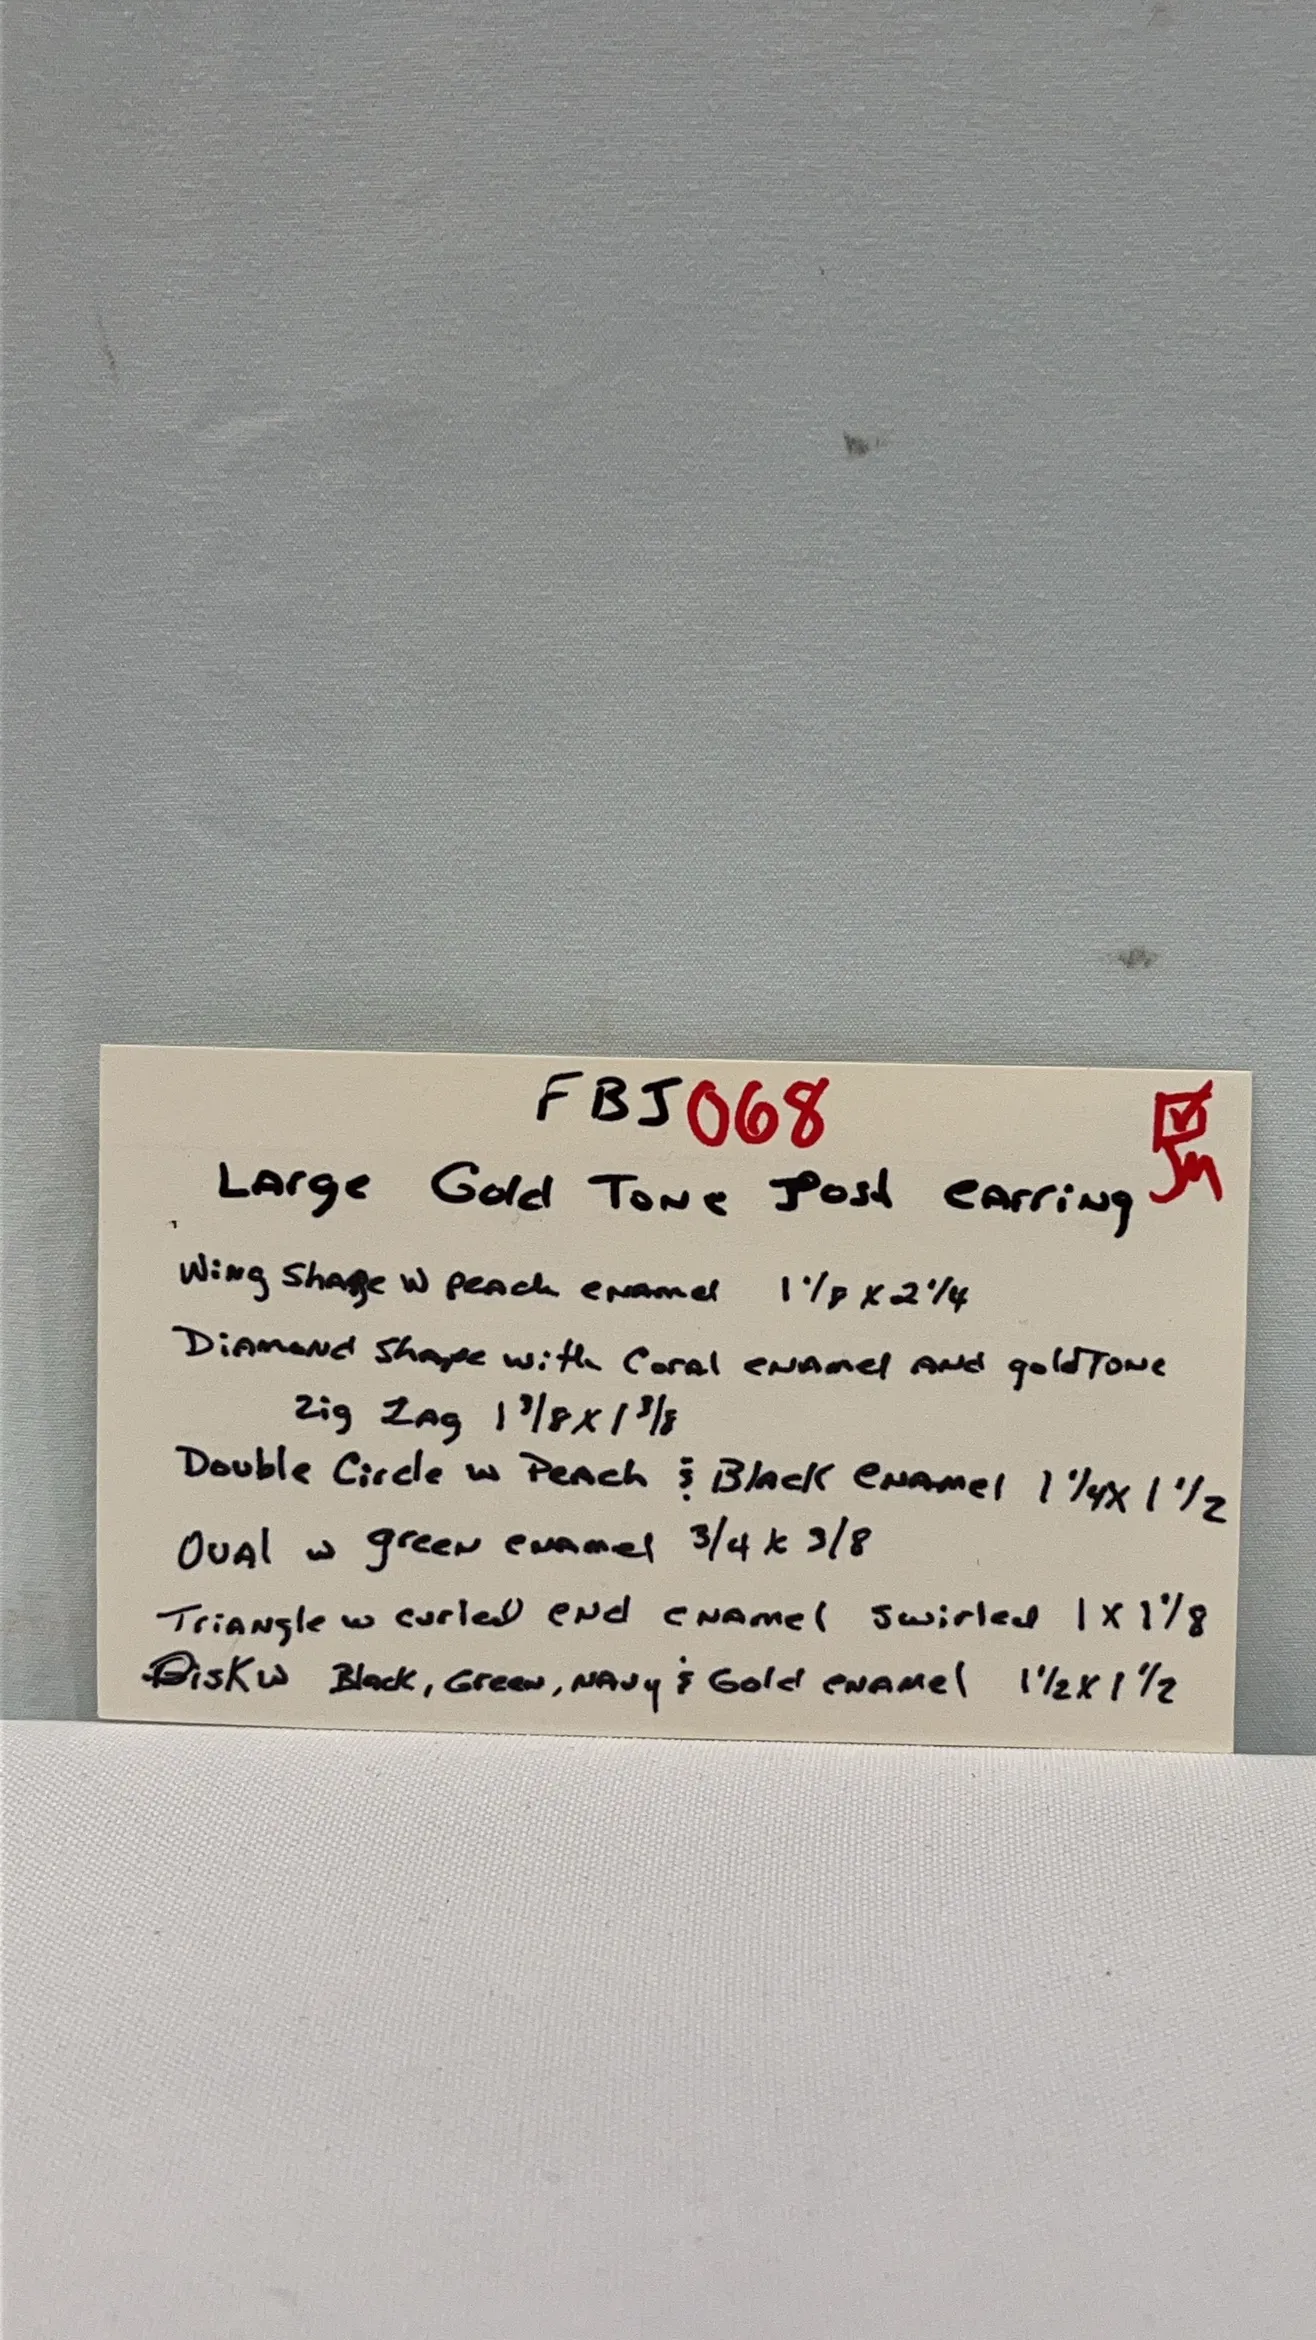 FBJ068
Large Gold Tone Post earring
JM
Wing Shape w peach enamel 1 1/8 x 2 1/4
Diamond Shape with Coral enamel and goldTone
Zig Zag 1 3/8 x 1 3/8
Double Circle w Peach & Black enamel 1 1/4 x 1 1/2
Oval w green enamel 3/4 x 3/8
Triangle w curled end enamel swirled 1 x 1 1/8
Disk w Black, Green, Navy & Gold enamel 1 1/2 x 1 1/2